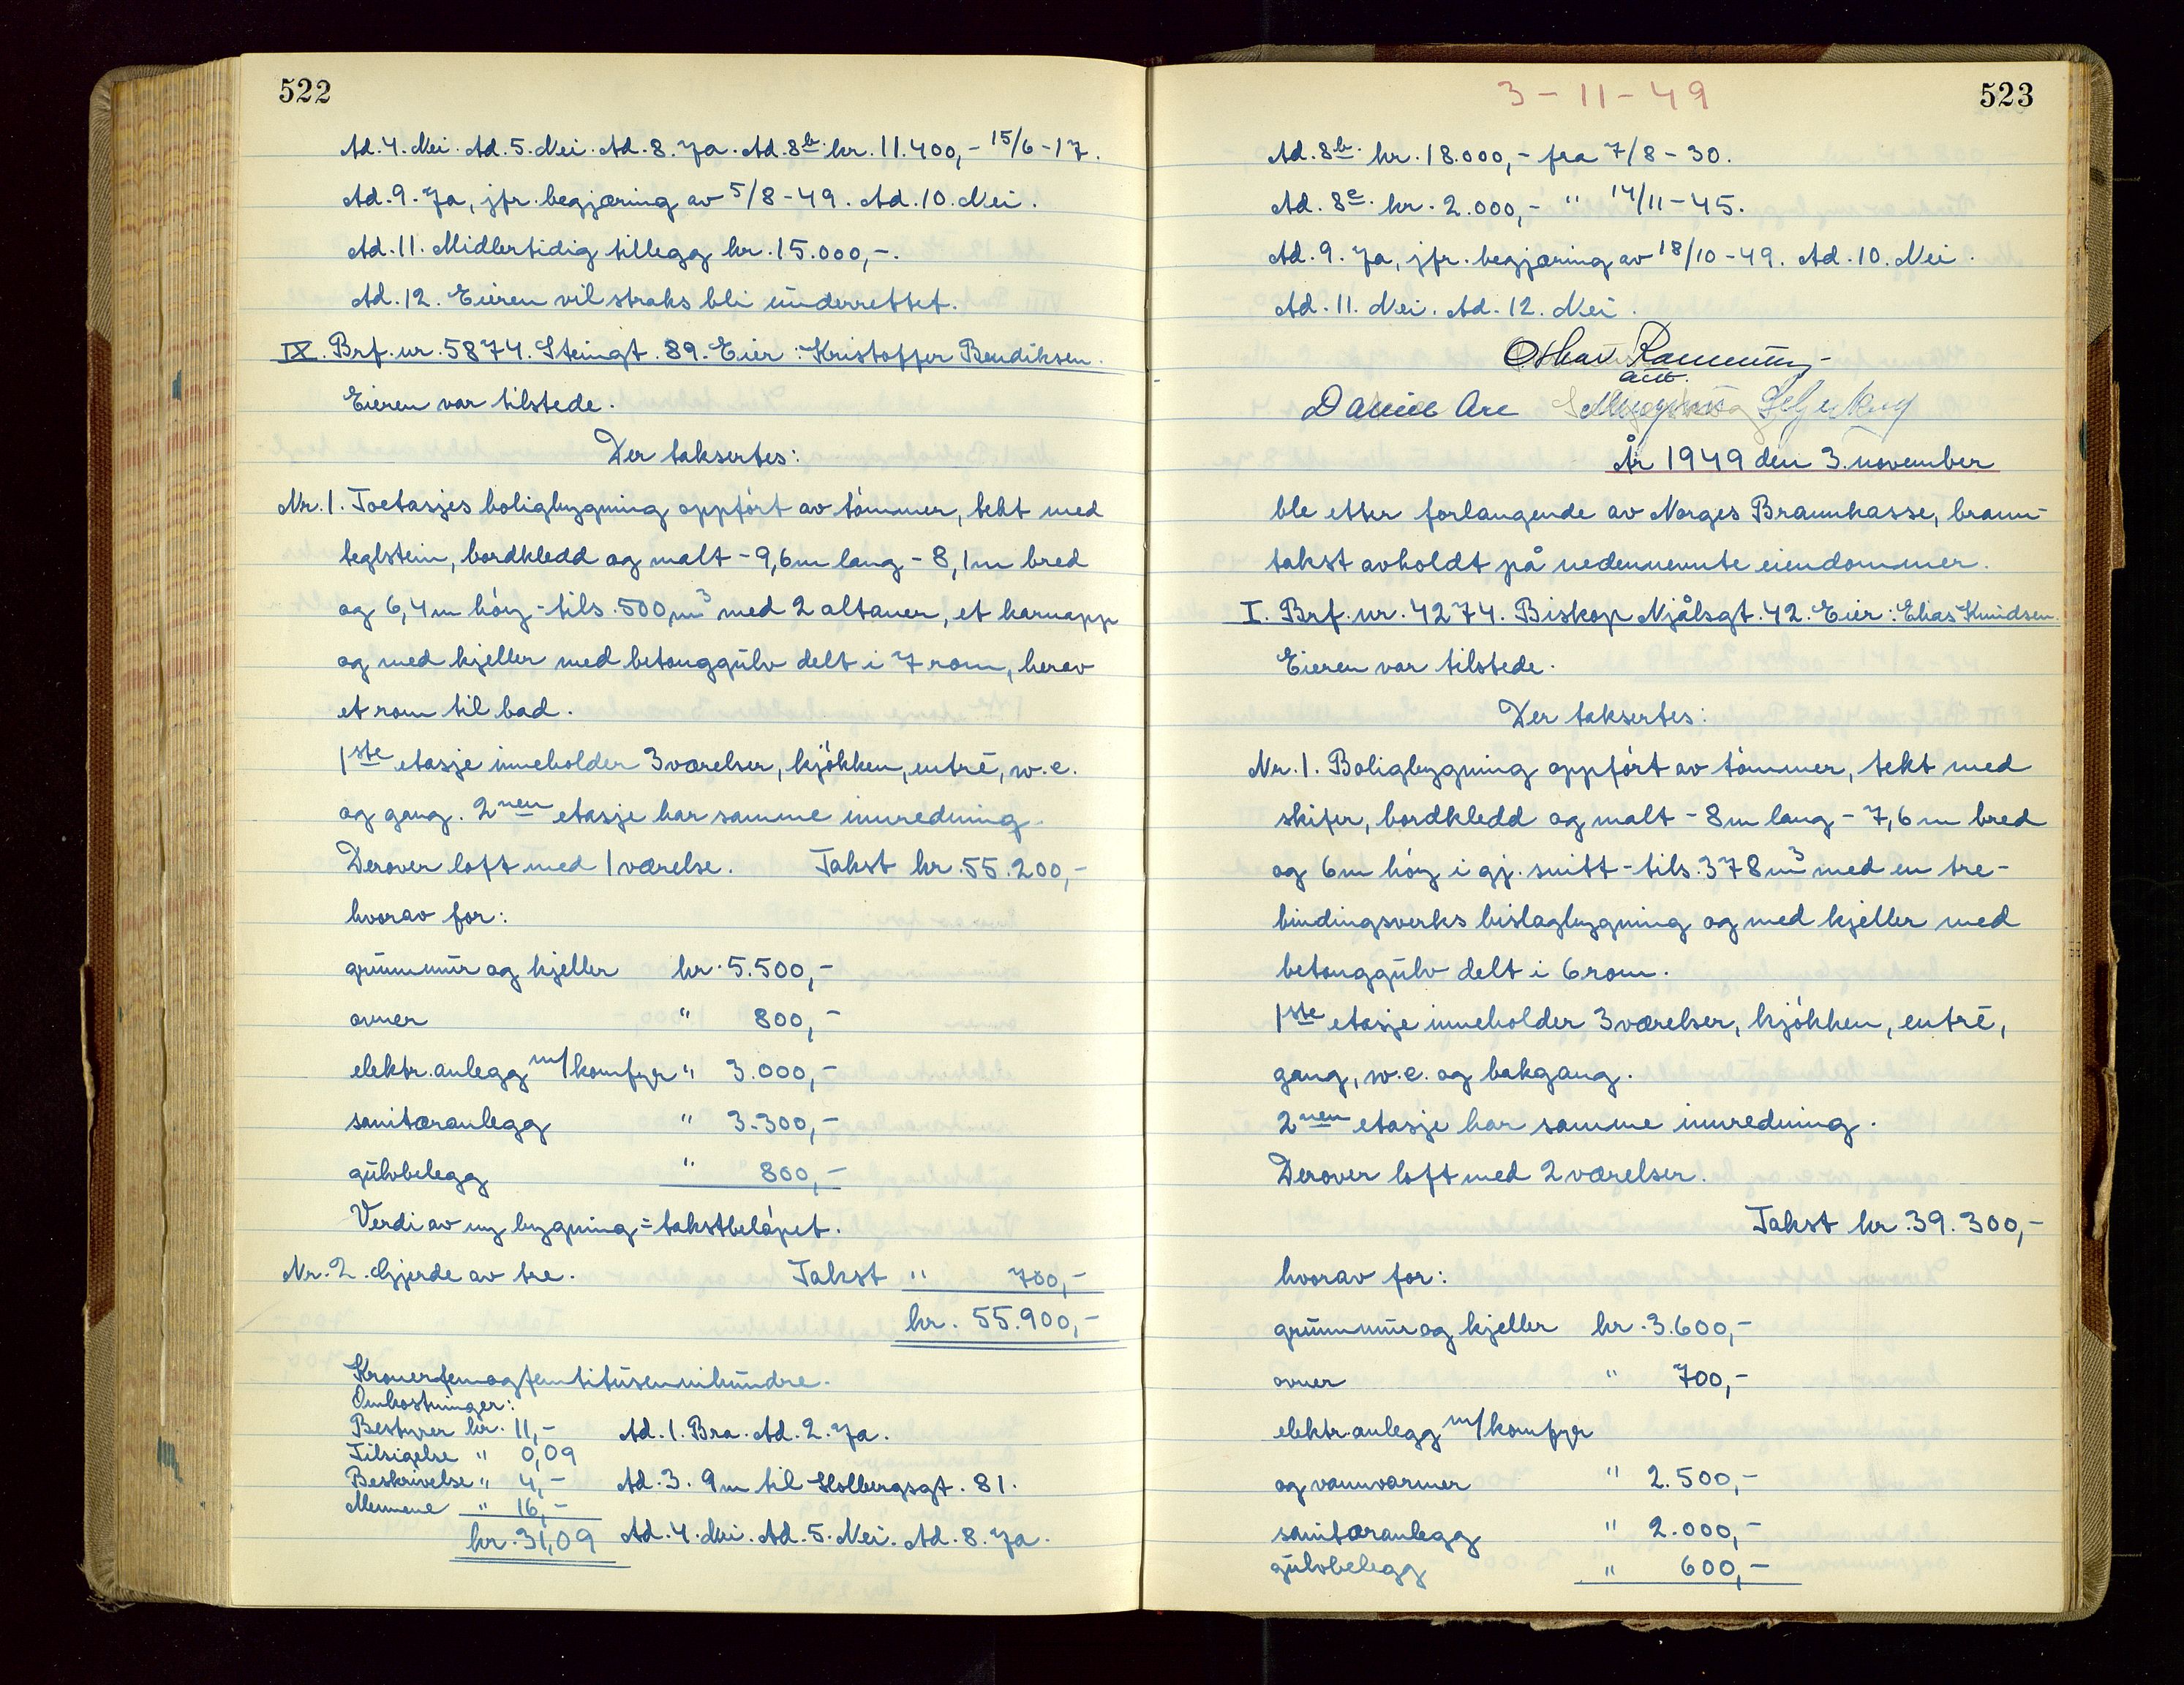 522
Ad. 4. Nei. Ad. 5. Nei. Ad. 8. Ja. Ad. 8b. kr. 11.400,- 15/6-17.
Ad. 9. Ja, jfr. begjæring av 5/8-49. Ad. 10. Nei.
Ad. 11. Midlertidig tillegg kr. 15.000,-.
Ad. 12. Eieren vil straks bli underrettet.
IX. Brf. nr. 5874. Steingt. 89. Eier: Kristoffer Bendiksen.
Eieren var tilstede.
Der taksertes:
Nr. 1. Toetasjes boligbygning oppført av tømmer, tekt med
teglstein, bordkledd og malt - 9,6 m lang - 8,1 m bred
og 6,4 m høy - tils. 500 m3 med 2 altaner, et karnapp
og med kjeller med betonggulv delt i 7 rom, herav
et rom til bad.
1ste etasje inneholder 3 værelser, kjøkken, entré, w.c.
og gang. 2nen etasje har samme innredning.
Derover loft med 1 værelse. Takst kr. 55.200,-
hvorav for:
grunnmur og kjeller kr. 5.500,-
ovner " 800,-
elektr. anlegg m/komfyr " 3.000,-
sanitæranlegg " 3.300,-
gulvbelegg " 800,-
Verdi av ny bygning = takstbeløpet.
Nr. 2. Gjerde av tre. Takst " 700,-
kr. 55.900,-
Kroner femogfemtitusennihundre.
Omkostninger:
Bestyrer kr. 11,- Ad. 1. Bra. Ad. 2. Ja.
Tilsigelse " 0,09
Beskrivelse " 4,- Ad. 3. 9 m til Holbergsgt. 81.
Mennene " 16,-
kr. 31,09 Ad. 4. Nei. Ad. 5. Nei. Ad. 8. Ja.
3-11-49
523
Ad. 8b. kr. 18.000,- fra 7/8-30.
Ad. 8c. kr. 2.000,- " 14/11-45.
Ad. 9. Ja, jfr. begjæring av 18/10-49. Ad. 10. Nei.
Ad. 11. Nei. Ad. 12. Nei.
Oskar
År 1949 den 3. november
ble etter forlangende av Norges Brannkasse, brann-
takst avholdt på nedennevnte eiendommer.
I. Brf. nr. 4274. Biskop Njålsgt. 42. Eier: Elias Knudsen.
Eieren var tilstede.
Der taksertes:
Nr. 1. Boligbygning oppført av tømmer, tekt med
skifer, bordkledd og malt - 8 m lang - 7,6 m bred
og 6 m høy i gj. snitt - tils. 378 m3 med en tre-
bindingsverks bislagbygning og med kjeller med
betonggulv delt i 6 rom.
1ste etasje inneholder 3 værelser, kjøkken, entré,
gang, w.c. og bakgang.
2nen etasje har samme innredning.
Derover loft med 2 værelser.
Takst kr. 39.300,-
hvorav for:
grunnmur og kjeller kr. 3.600,-
ovner " 700,-
elektr. anlegg m/komfyr
og vannvarmer " 2.500,-
sanitæranlegg " 2.000,-
gulvbelegg " 600,-